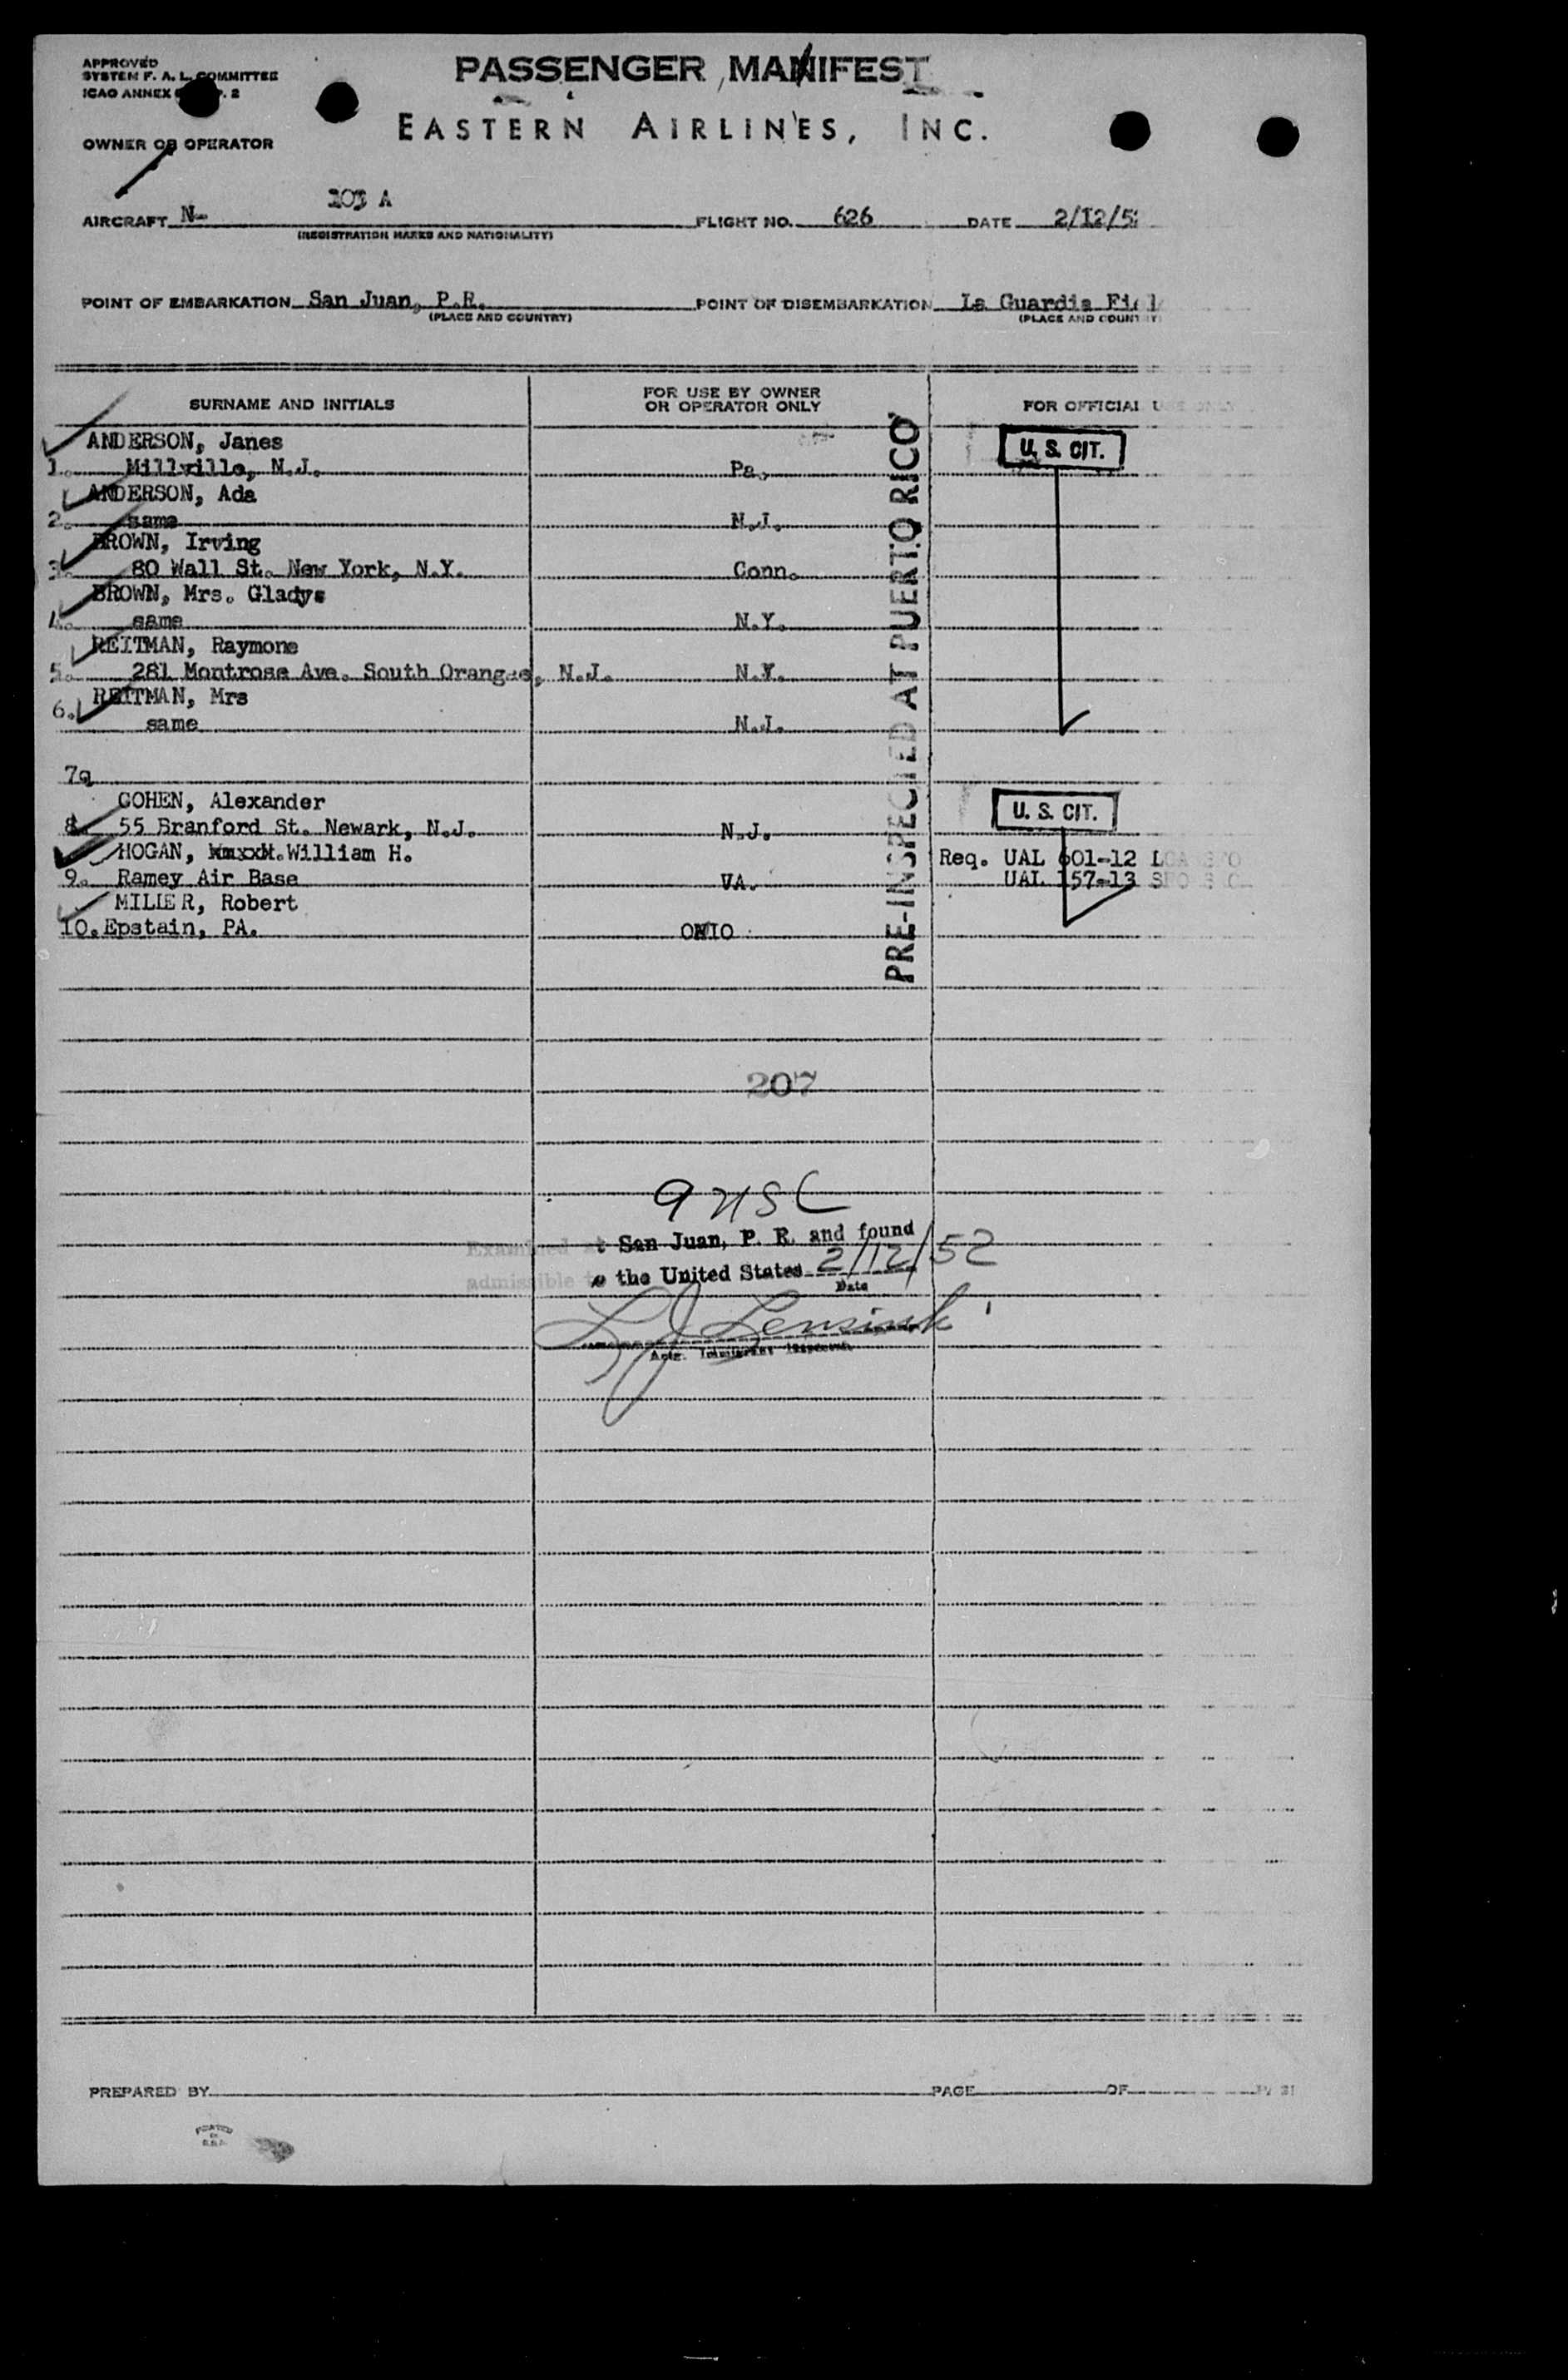 APPROVED
SYSTEM F. A. L. COMMITTEE
ICAO ANNEX P. 2
PASSENGER MANIFEST
EASTERN AIRLINES, INC.
OWNER OR OPERATOR
AIRCRAFT N- 203 A FLIGHT NO. 626 DATE 2/12/5
(REGISTRATION MARKS AND NATIONALITY)
POINT OF EMBARKATION San Juan, P.R. POINT OF DISEMBARKATION La Guardia Fiel
(PLACE AND COUNTRY) (PLACE AND COUNTRY)
SURNAME AND INITIALS FOR USE BY OWNER OR OPERATOR ONLY FOR OFFICIAL USE ONLY
ANDERSON, Janes U. S. CIT.
1. Millville, N.J. Pa.
ANDERSON, Ada
2. same N.J.
BROWN, Irving
3. 80 Wall St. New York, N.Y. Conn.
BROWN, Mrs. Gladys
4. same N.Y.
REITMAN, Raymone
5. 281 Montrose Ave. South Orange, N.J. N.Y.
REITMAN, Mrs
6. same N.J.
7.
COHEN, Alexander U. S. CIT.
8. 55 Branford St. Newark, N.J. N.J.
HOGAN, William H. Req. UAL 601-12
9. Ramey Air Base VA. UAL 157-13
MILLER, Robert
10. Epstain, PA. OHIO
PRE-INSPECTED AT PUERTO RICO
207
9 USC
Examined at San Juan, P. R. and found
admissible to the United States 2/12/52
Date
L J Lensink
Actg. Immigrant Inspector
PREPARED BY PAGE OF
PRINTED
IN
U.S.A.